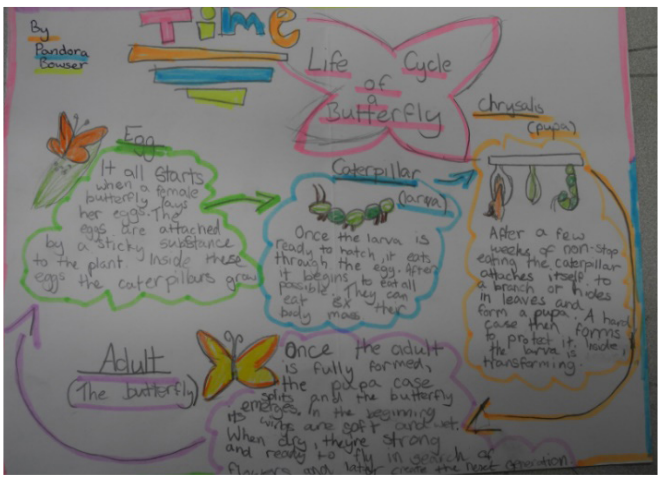 By
Pandora
Bowser
Time
Life Cycle
of
a
Butterfly
Egg
It all starts
when a female
butterfly lays
her eggs. The
eggs are attached
by a sticky substance
to the plant. Inside these
eggs the caterpillars grow
Caterpillar
(larva)
Once the larva is
ready to hatch, it eats
through the egg. After
it begins to eat all
possible. They can
eat 6x their
body mass
Chrysalis
(pupa)
After a few
weeks of non-stop
eating the caterpillar
attaches itself to
a branch or hides
in leaves and
form a pupa. A hard
case then forms
to protect it. Inside,
the larva is
transforming.
Adult
(The butterfly)
Once the adult
is fully formed,
the pupa case
splits and the butterfly
emerges. In the beginning
its wings are soft and wet.
When dry, they're strong
and ready to fly in search of
flowers and later create the next generation